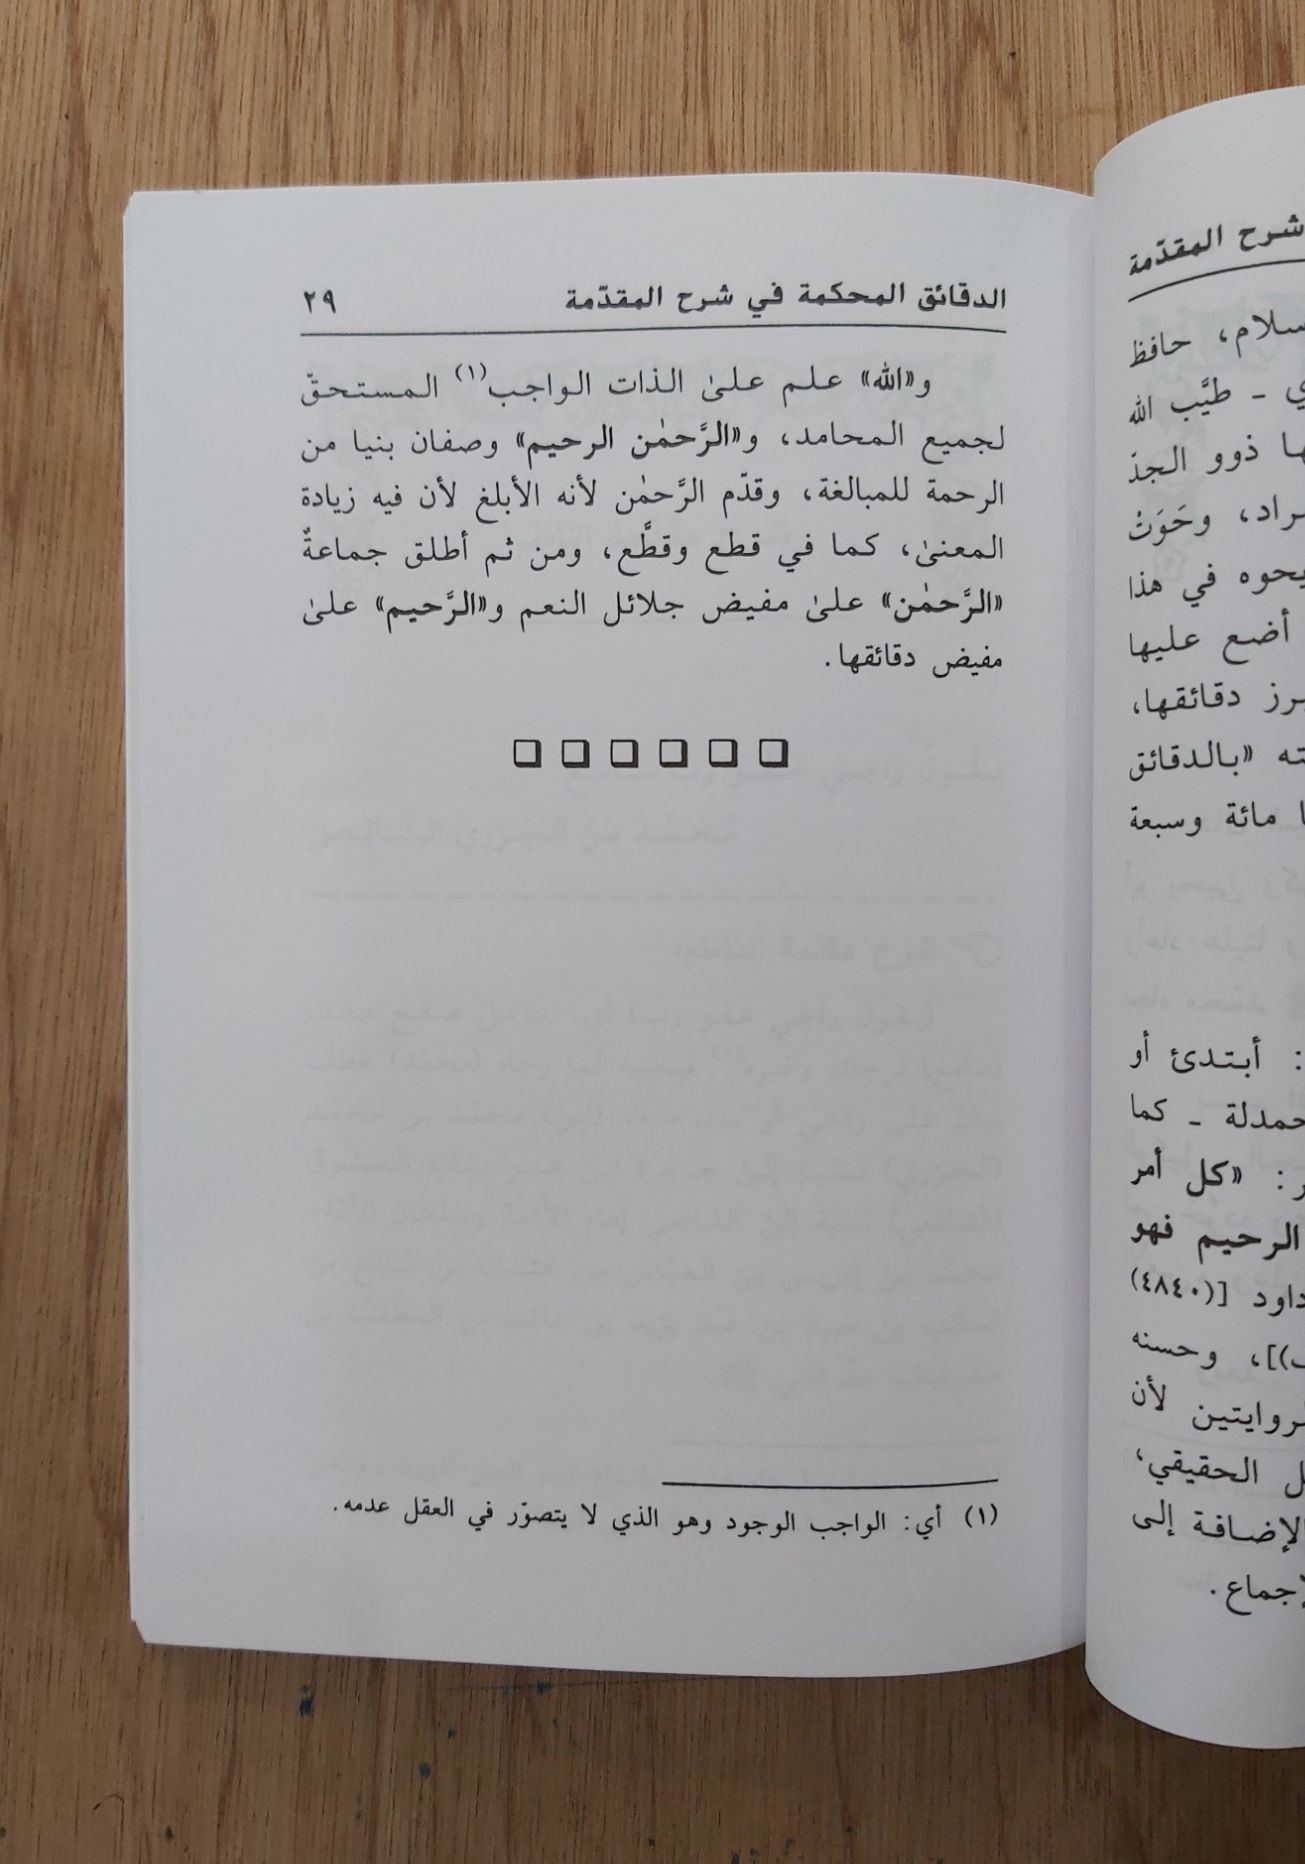 الدقائق المحكمة في شرح المقدّمة ٢٩
و«الله» علم علىٰ الذات الواجب(١) المستحقّ
لجميع المحامد، و«الرَّحمٰن الرحيم» وصفان بنيا من
الرحمة للمبالغة، وقدّم الرَّحمٰن لأنه الأبلغ لأن فيه زيادة
المعنىٰ، كما في قطع وقطَّع، ومن ثم أطلق جماعةٌ
«الرَّحمٰن» علىٰ مفيض جلائل النعم و«الرَّحيم» علىٰ
مفيض دقائقها.
(١) أي: الواجب الوجود وهو الذي لا يتصوّر في العقل عدمه.
شرح المقدّمة
حافظ
طيَّب الله
ذوو الجدّ
وحَوَتْ
يحوه في هذا
أضع عليها
دقائقها،
«بالدقائق
مائة وسبعة
: أبتدئ أو
ـ كما
: «كل أمر
الرحيم فهو
[(٤٨٤٠)
)]، وحسنه
لأن
الحقيقي،
إلى